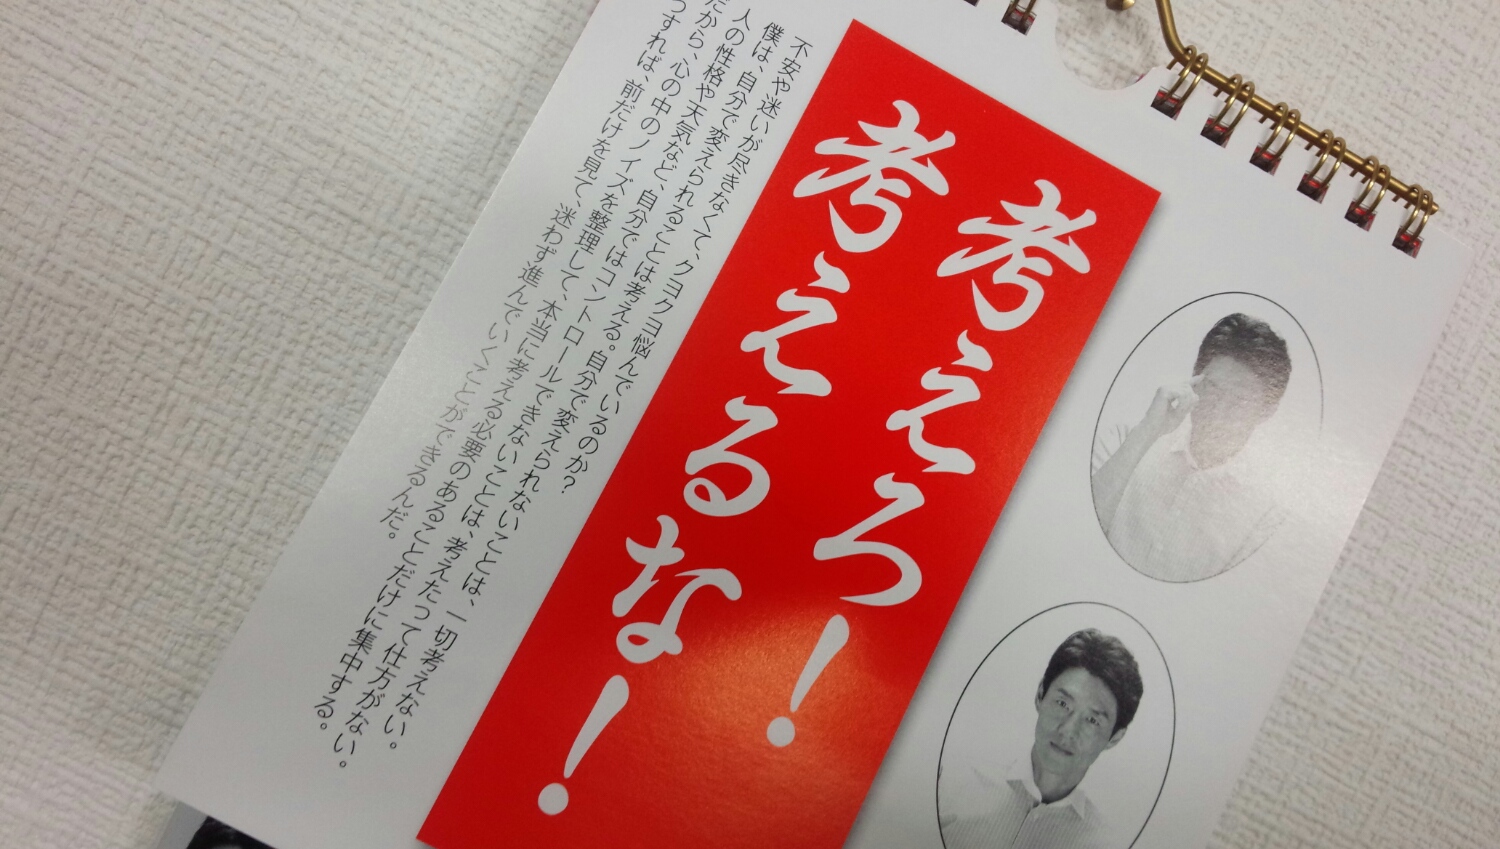 考えろ!
考えるな!
不安や迷いが尽きなくて、クヨクヨ悩んでいるのか?
僕は、自分で変えられることは考える。自分で変えられないことは、一切考えない。
人の性格や天気など、自分ではコントロールできないことは、考えたって仕方がない。
だから、心の中のノイズを整理して、本当に考える必要のあることだけに集中する。
うすれば、前だけを見て、迷わず進んでいくことができるんだ。